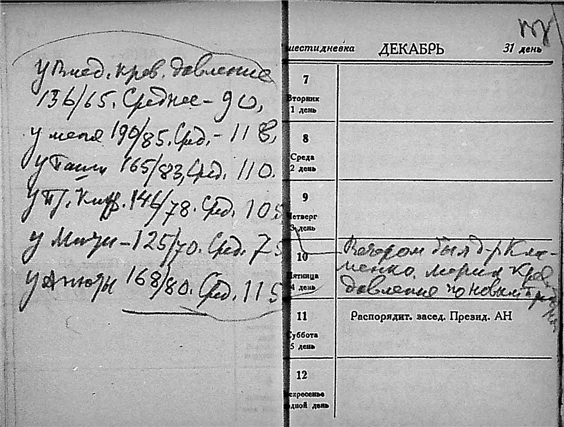 у Влад. кров. давление
136/65. Среднее - 90,
у меня 190/85. Сред. - 118,
у Паши 165/83, Сред. 110.
146/78. Сред. 105
у Мити - 125/70. Сред. 75
у Анюты 168/80. Сред. 115
шестидневка ДЕКАБРЬ 31 день
7
Вторник
1 день
8
Среда
2 день
9
Четверг
3 день
10
Пятница
4 день
Вечером был д-р Кли-
менко, мерил кров.
давление по новым
11
Суббота
5 день
Распорядит. засед. Презид. АН
12
Воскресенье
одной день